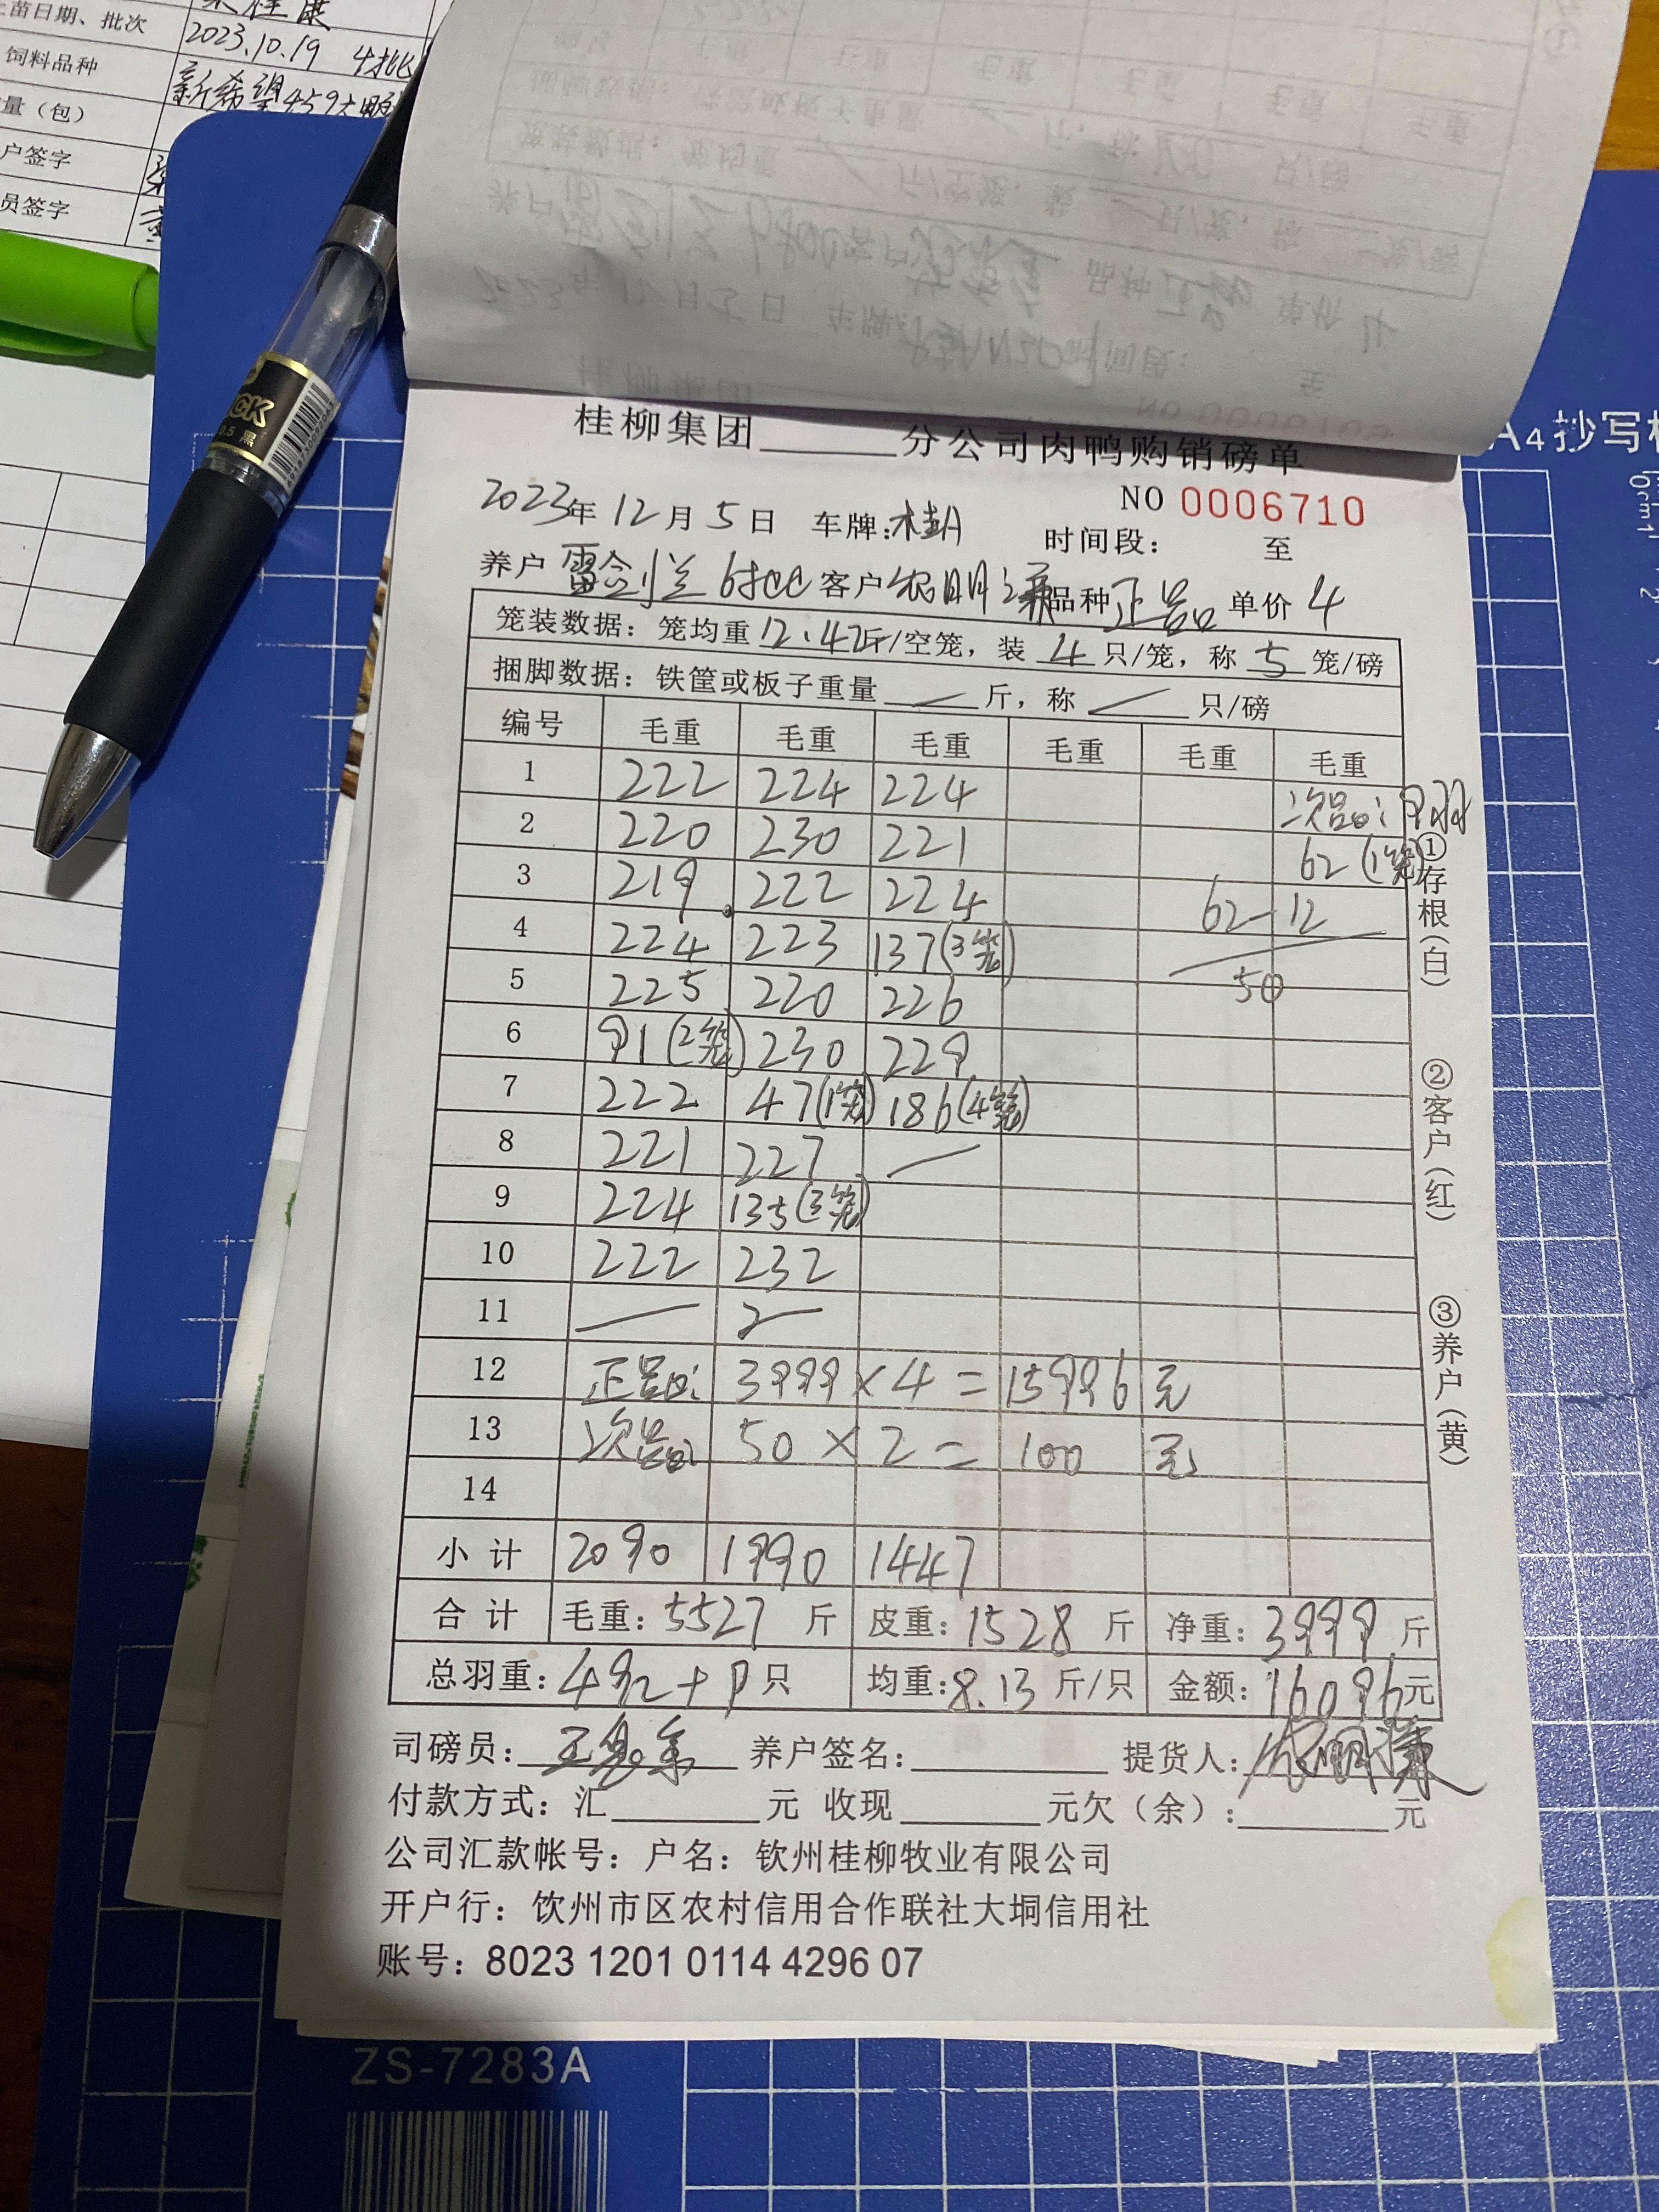 苗日期、批次 2023.10.19 4批
饲料品种 新希望459大鸭
量（包）
户签字
员签字
CK
0.5 黑
A4抄写
桂柳集团______分公司肉鸭购销磅单
NO 0006710
2023年 12月 5日 车牌:桂A 时间段: 至
养户 雷 6批 客户 农明 品种 正品 单价 4
笼装数据: 笼均重 12.42斤/空笼, 装 4 只/笼, 称 5 笼/磅
捆脚数据: 铁筐或板子重量 — 斤, 称 — 只/磅
编号 毛重 毛重 毛重 毛重 毛重 毛重
1 222 224 224 次品: 9羽
2 220 230 221 62 (1笼)
3 219 222 224 62-12
4 224 223 137(3笼)
5 225 220 226 50
6 91(2笼) 230 229
7 222 47(1笼) 186(4笼)
8 221 227 —
9 224 135(3笼)
10 222 232
11 —
12 正品: 3999 × 4 = 15996 元
13 次品: 50 × 2 = 100 元
14
小 计 2090 1990 1447
合 计 毛重: 5527 斤 皮重: 1528 斤 净重: 3999 斤
总羽重: 492+9只 均重: 8.13 斤/只 金额: 16096元
司磅员: 养户签名: 提货人:
付款方式: 汇______元 收现______元欠（余）:______元
公司汇款帐号: 户名: 钦州桂柳牧业有限公司
开户行: 饮州市区农村信用合作联社大垌信用社
账号: 8023 1201 0114 4296 07
①存根(白)
②客户(红)
③养户(黄)
ZS-7283A